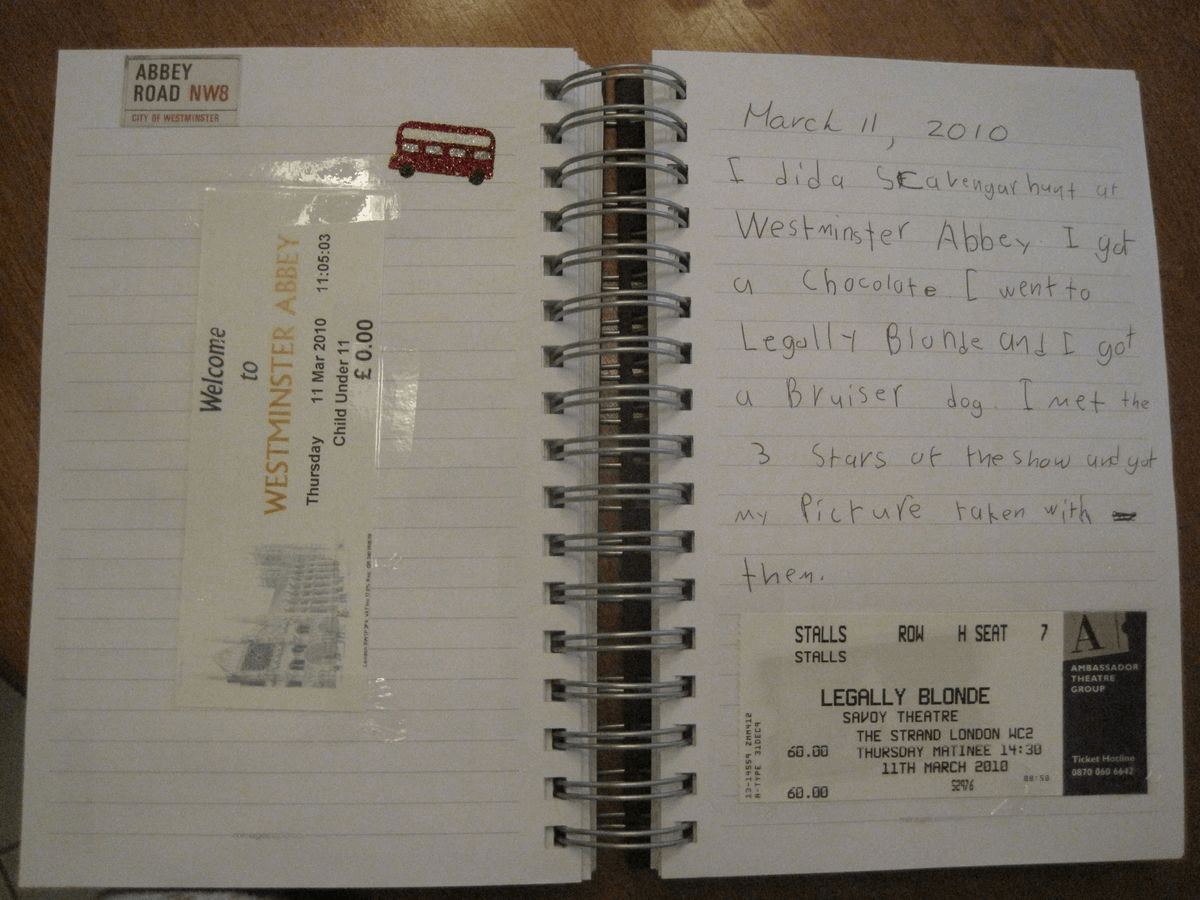 ABBEY
ROAD NW8
CITY OF WESTMINSTER
Welcome
to
WESTMINSTER ABBEY
Thursday 11 Mar 2010 11:05:03
Child Under 11
£ 0.00
March 11, 2010
I did a Scavengar hunt at
Westminster Abbey. I got
a Chocolate. I went to
Legally Blonde and I got
a Bruiser dog. I met the
3 Stars of the show and got
my Picture taken with
them.
STALLS ROW H SEAT 7
STALLS
LEGALLY BLONDE
SAVOY THEATRE
THE STRAND LONDON WC2
60.00 THURSDAY MATINEE 14:30
11TH MARCH 2010
52976
60.00
A
AMBASSADOR
THEATRE
GROUP
Ticket Hotline
0870 060 6642